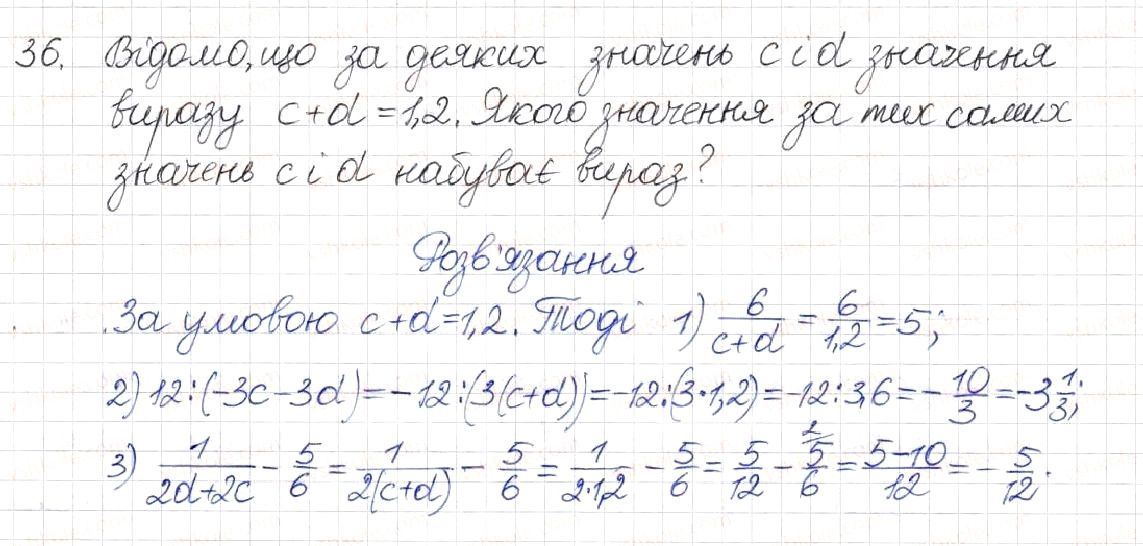 36. Відомо, що за деяких значень c і d значення
виразу c+d=1,2. Якого значення за тих самих
значень c і d набуває вираз?
Розв'язання
За умовою c+d=1,2. Тоді 1) 6/(c+d) = 6/1,2 = 5;
2) 12:(-3c-3d)=-12:(3(c+d))=-12:(3·1,2)=-12:3,6=-10/3=-3 1/3;
3) 1/(2d+2c) - 5/6 = 1/(2(c+d)) - 5/6 = 1/(2·1,2) - 5/6 = 5/12 - 2/5/6 = (5-10)/12 = -5/12.